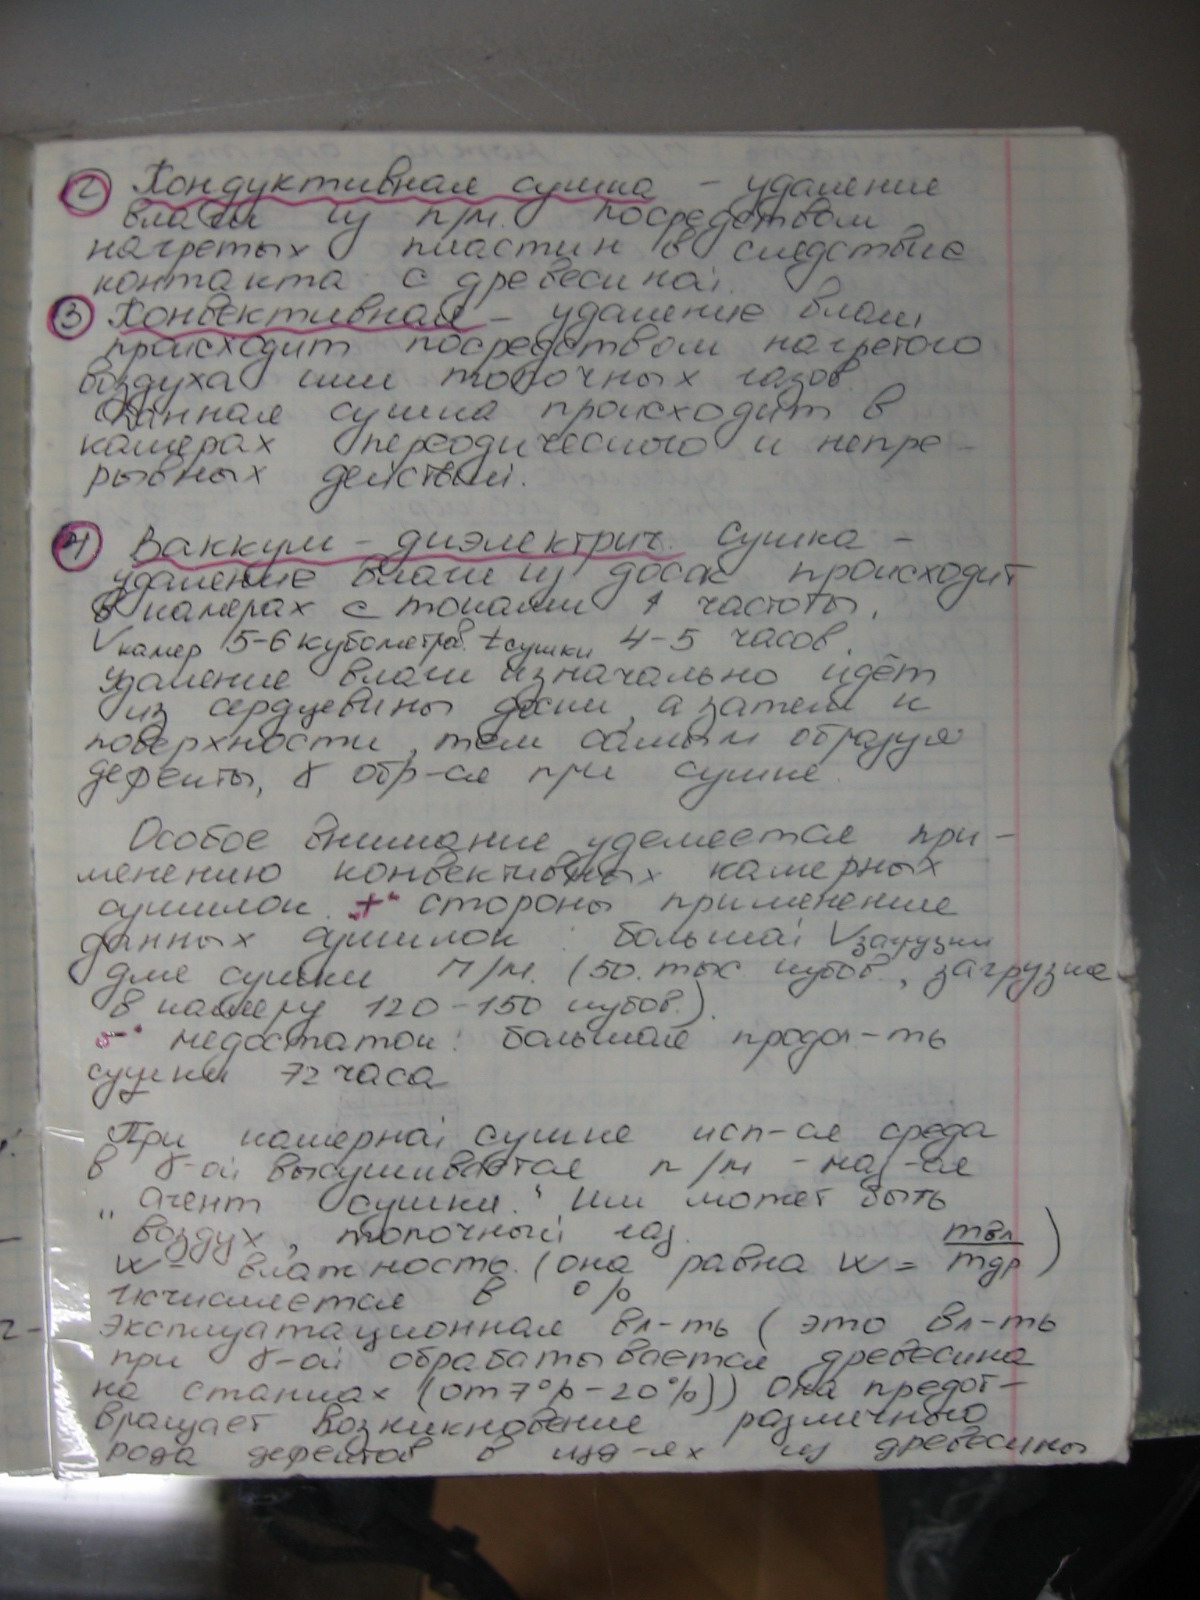 2 Кондуктивная сушка – удаление
влаги из п/м. посредством
нагретых пластин в следствие
контакта с древесиной.
3 Конвективная – удаление влаги
происходит посредством нагретого
воздуха или топочных газов.
Данная сушка происходит в
камерах переодического и непре-
рывных действий.
4 Ваккум – диэлектрич. сушка –
удаление влаги из досок происходит
в камерах с токами ↑ частоты.
Vкамер 5-6 кубометров. tсушки 4-5 часов.
Удаление влаги изначально идёт
из сердцевины доски, а затем к
поверхности, тем самым образуя
дефекты, γ обр-ся при сушке.
Особое внимание уделяется при-
менению конвективных камерных
сушилок. "+" стороны применение
данных сушилок: большой Vзагрузки
для сушки П/М. (50. тыс кубов, загрузка
в камеру 120-150 кубов.).
"-" недостаток: большая продол-ть
сушки 72 часа
При камерной сушке исп-ся среда
в γ-ой высушивается п/м – наз-ся
„агент сушки." Им может быть
воздух, топочный газ.
W – влажность. (она равна W = mвл/mдр)
исчисляется в %
Эксплуатационная вл-ть (это вл-ть
при γ-ой обрабатывается древесина
на станках (от 7% – 20%)) Она предот-
вращает возникновение различного
рода дефектов в изд-ях из древесины